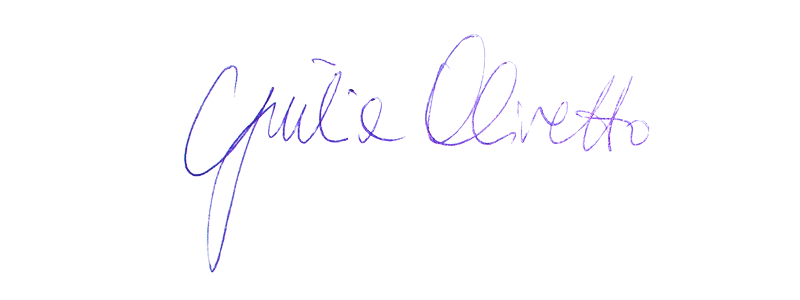 Giulia Olivetto